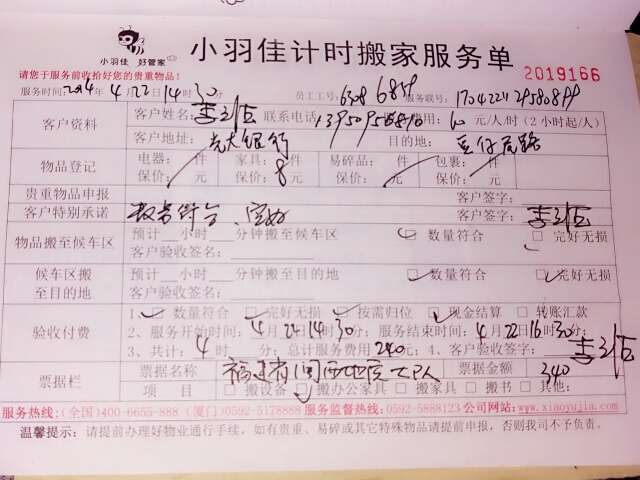 小羽佳 好管家
小羽佳计时搬家服务单
请您于服务前收拾好您的贵重物品!
2019166
服务时间: 2014年 4月 22日 14时 30分 员工工号: 6308 6859 服务联号:
客户资料 客户姓名: 联系电话: 费用: 60 元/人/时(2小时起/人)
客户地址: 光大银行 目的地:
物品登记 电器: 件 家具: 件 易碎品: 件 包裹: 件
保价: 元 保价: 8 元 保价: 元 保价: 元
贵重物品申报 客户签字:
客户特别承诺 数量符合、完好 客户签字:
物品搬至候车区 预计 小时 分钟搬至候车区 □ 数量符合 □ 完好无损
客户验收签名:
候车区搬至目的地 预计 小时 分钟搬至目的地 □ 数量符合 □ 完好无损
客户验收签名:
验收付费 1、□ 数量符合 □ 完好无损 □ 按需归位 □ 现金结算 □ 转账汇款
2、服务开始时间: 4月 22日 14时 30分; 服务结束时间: 4月 22日 16时 30分;
3、共计: 4 时 分; 总计服务费用 240 元; 4、客户验收签字:
票据栏 票据名称 票据金额 240
项 目 □ 搬设备 □ 搬办公家具 □ 搬家具 □ 搬书 □ 其他:
服务热线:(全国)400-6655-888 (厦门)0592-5178888 服务监督热线: 0592-5888123 公司网站:www.xiaoyujia.com
温馨提示: 请提前办理好物业通行手续, 如有贵重、易碎或其它特殊物品请提前申报, 否则我司不予负责。